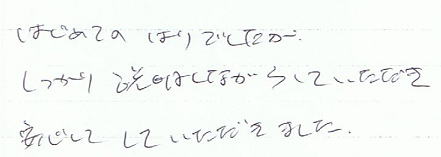 はじめての はりでしたが、
しっかり説明しながらしていただき
安心して していただきました。